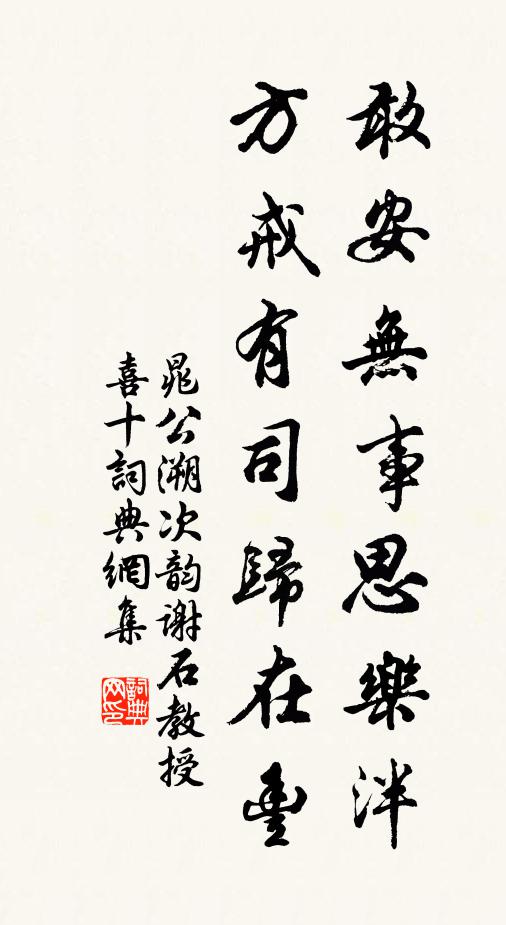 敢安無事思樂泮
方戒有司歸在豐
晁公溯次韵謝石教授
喜十詞典網集
詞典网印